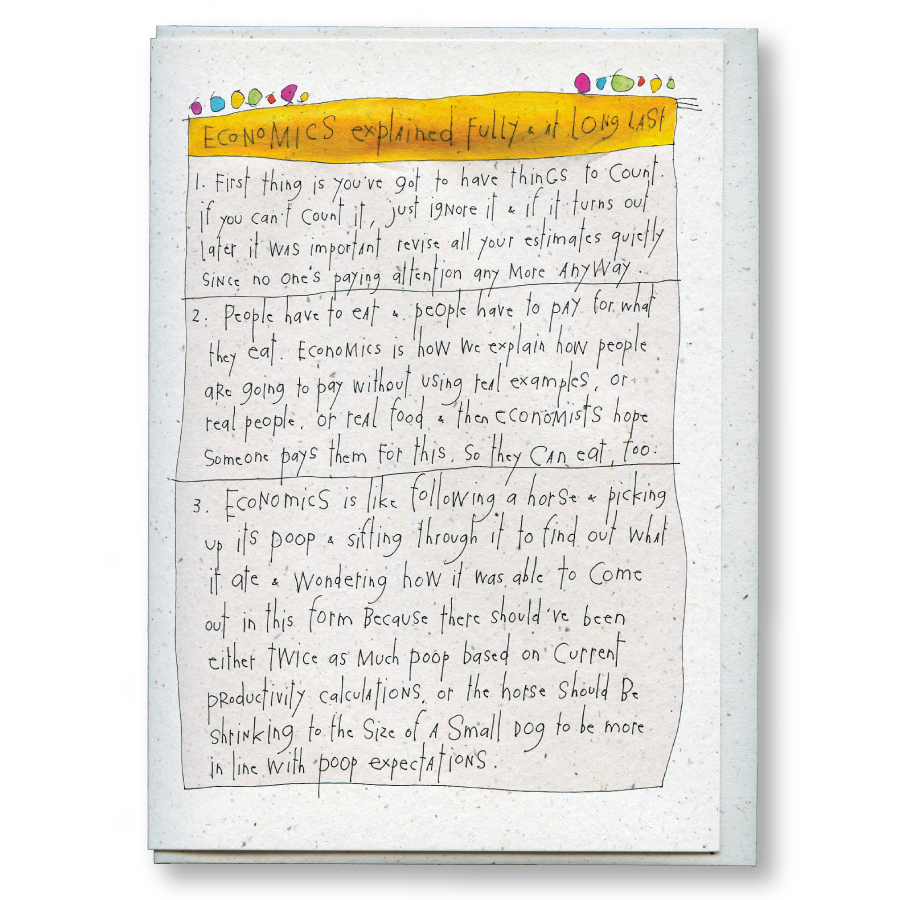 ECONOMICS explained fully & at LONG LAST
1. First thing is you've got to have thinGS to Count.
if you can't count it, just IGNore it & if it turns out
later it was important revise all your estimates quietly
SINCe no one's paying attention any More AnyWay.
2. People have to eAt & peOple have to pAy for what
they eat. EcoNoMics is how We explain how people
aRe going to pay without using reAl examples, or
real people, or reAl food & then eCONOMiStS hope
Someone pays them For this. So they CAn eat, too.
3. EcoNOmicS is like following a horSe & picking
up itS poop & sifting through it to find out what
it ate & Wondering how it was able to Come
out in this form Because there should've been
either tWice as Much poop based on Current
pRoductivity calculAtioNS, or the horse Should Be
shrinking to the Size of A Small DOg to be more
in line With pOOp expectAtIONS.